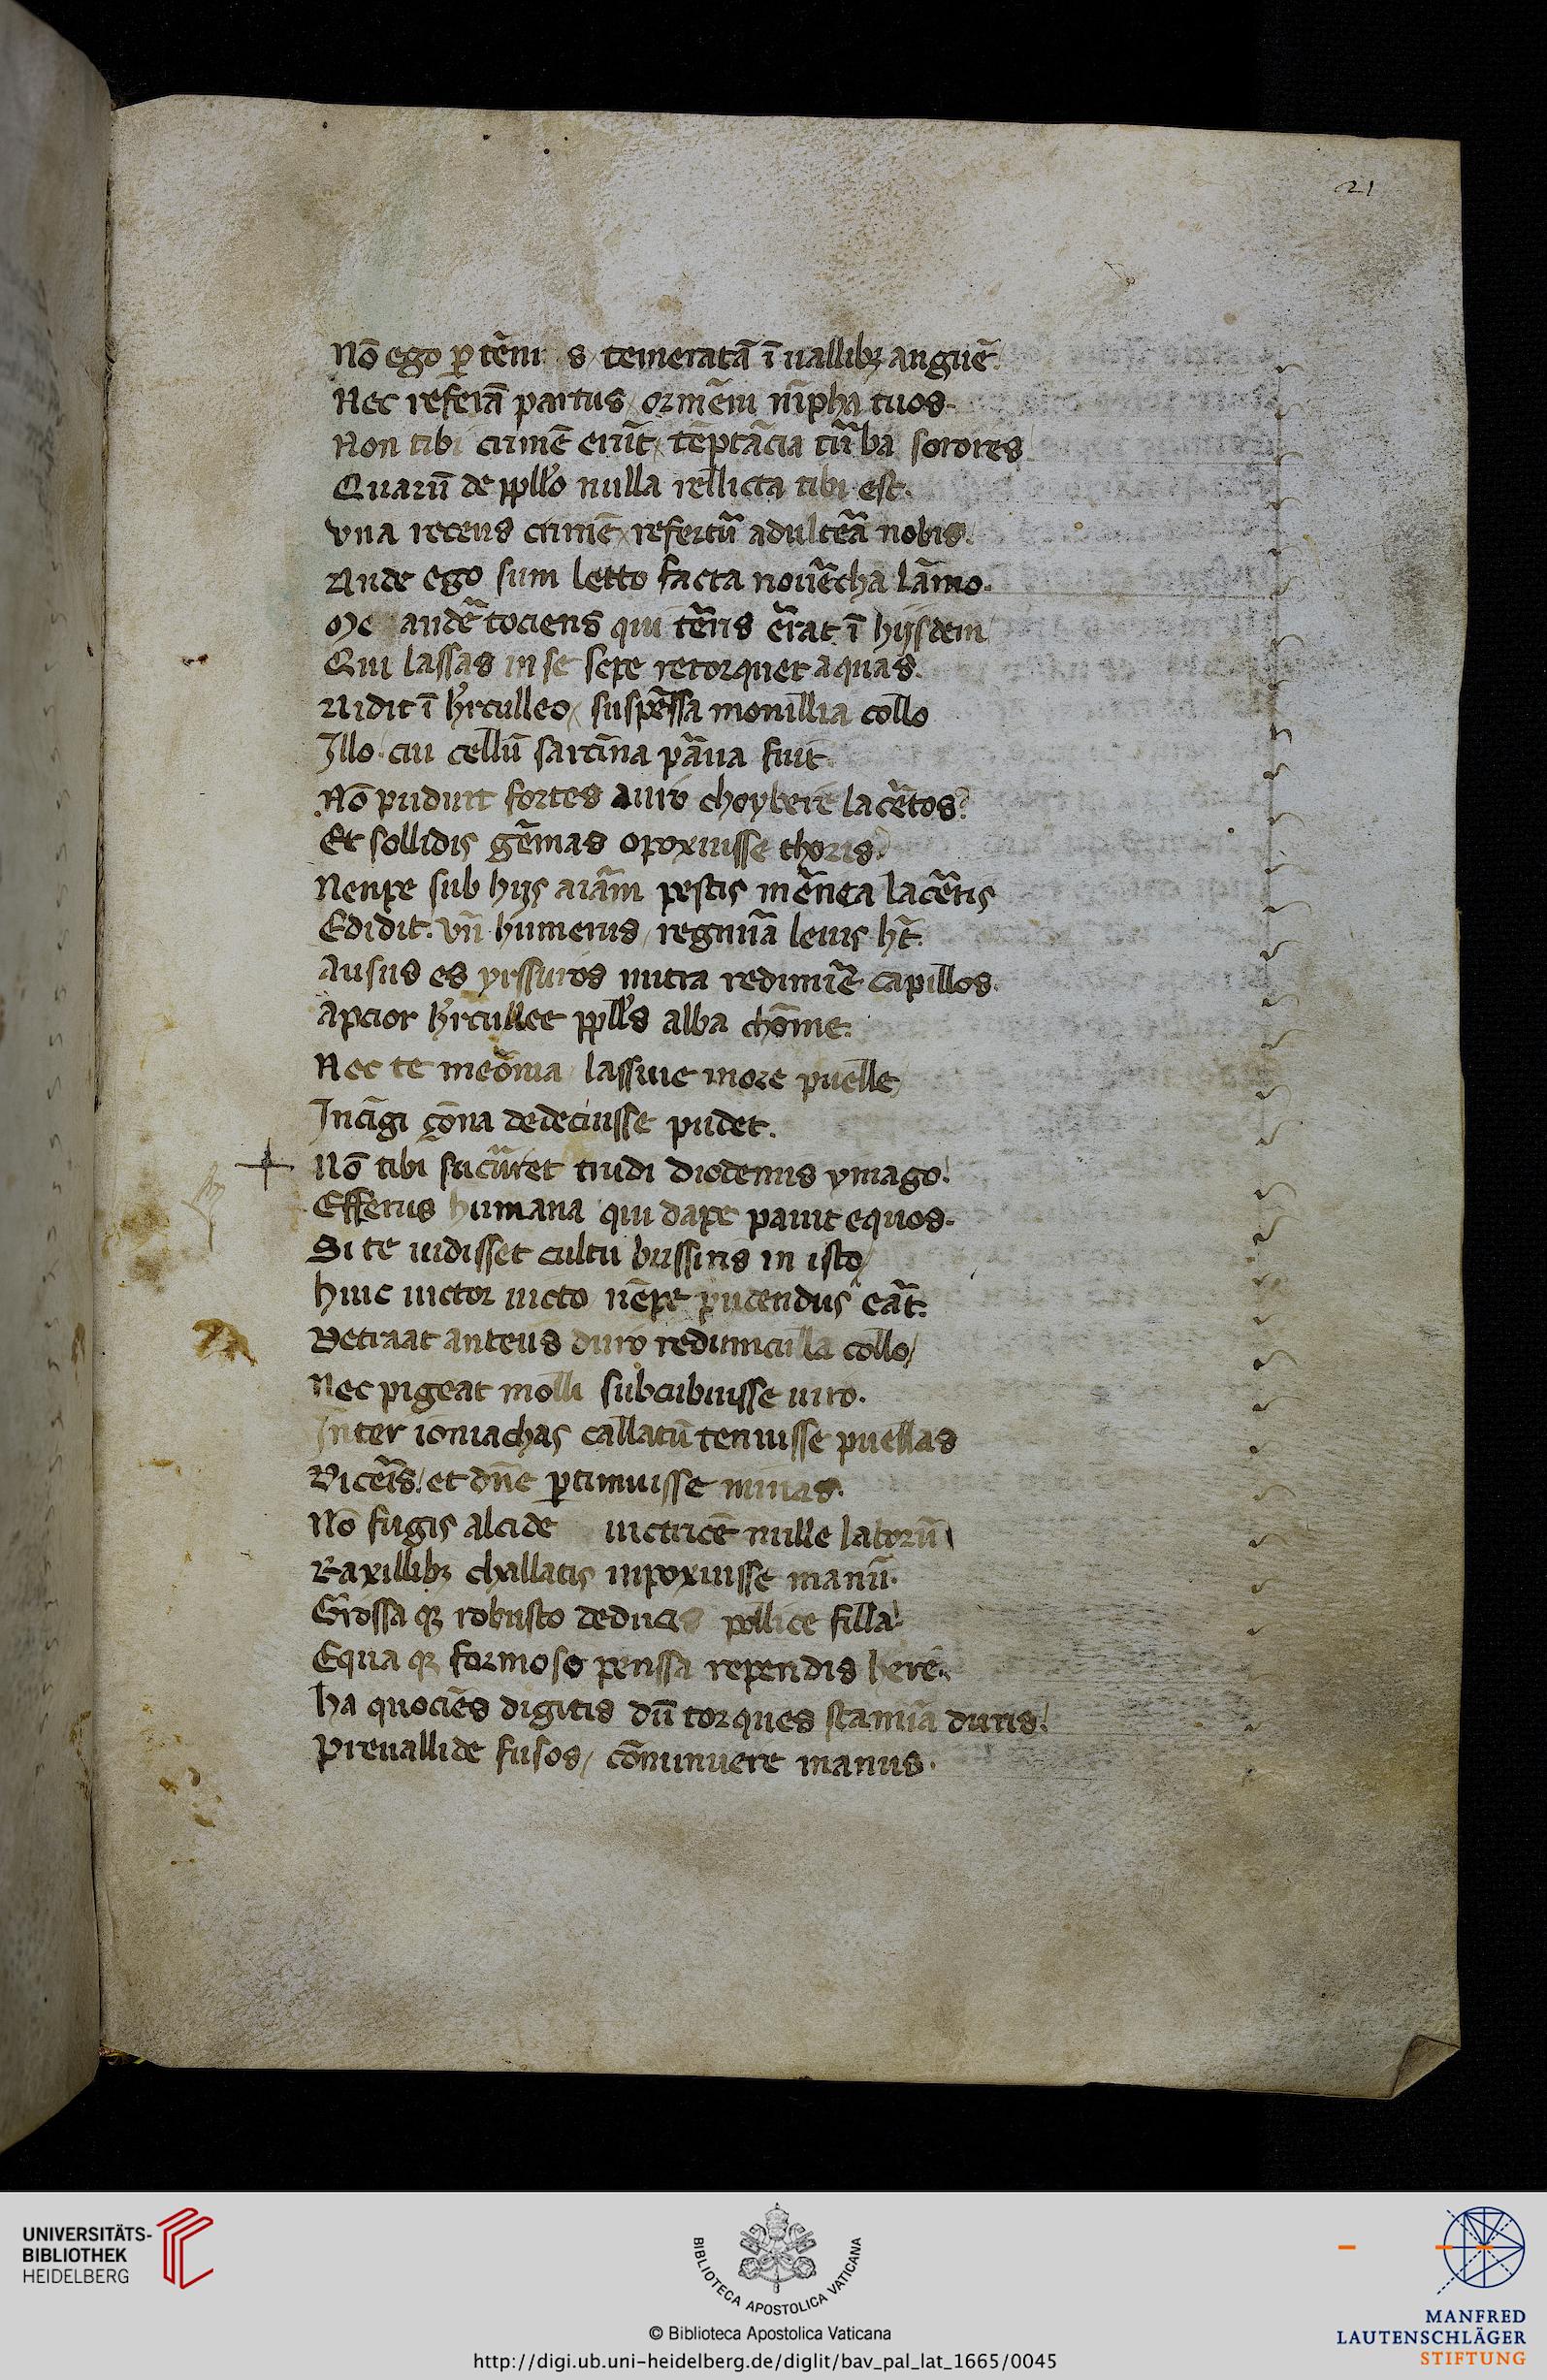 21
Nō ego ꝑ tēni s / temeratā ī uallibꝫ anguē.
Nec referā partus / ormēni nīpha tuos.
Non tibi crimē erūt / tēptācia tūba sorores
Quarū de ppl̄lo nulla rellicta tibi est.
vna recens crimē / refertū adultēa nobis.
Unde ego sum letto facta nouēcha lāmo.
Me andē tociens qui tēris ērat ī hijsdem
Qui lassas in se sepe retorquet aquas.
Uidit ī h̓rculleo / suspēssa monillia collo
Illo / cui cellū sartīna pāua fuit.
Nō puduit fortes auro choybere lacētos?
Et sollidis gēmas opoxuisse thoris.
Nenpe sub hijs aīam pestis mēnea lacētis
Edidit. vn̄ humerus / regmīa leuis ht̄.
Ausus es yrssutos mitra redimiē capillos.
Apcior h̓rcullee ppl̄l's alba chōme.
Nec te meōnia / lassiue more puelle /
Incīgi çōna dedecuisse pudet.
Nō tibi sucūret trudi diodemis ymago.
Efferus humana qui dape pauit equos.
Si te uidisset cultu bussiris in isto /
Huic uictor uicto nēpe pudendus eāt.
Detraat anteus duro redimicilla collo /
Nec pigeat molli subcubuisse uiro.
Inter ioniachas callatū tenuisse puellas
Dicēis / et dn̄e ꝑtimuisse minas.
Nō fugis alcide uictricē mille laborū
Raxillibꝫ challatis inpoxuisse manū.
Grossa qꝫ robusto deducis pollice filla
Equa qꝫ formose penssa rependis here.
ha quociēs digitis dū torques stamīa duris.
Preuallide fusos / cōminuere manus.
UNIVERSITÄTS-
BIBLIOTHEK
HEIDELBERG
BIBLIOTECA APOSTOLICA VATICANA
© Biblioteca Apostolica Vaticana
http://digi.ub.uni-heidelberg.de/diglit/bav_pal_lat_1665/0045
MANFRED
LAUTENSCHLÄGER
STIFTUNG